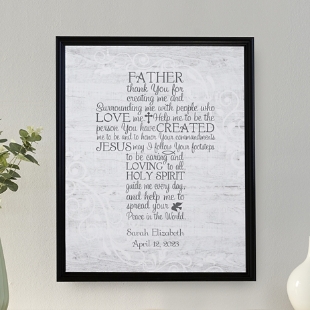 FATHER
thank You for
creating me and
Surrounding me with people who
LOVE me Help me to be the
person You have CREATED
me to be and to honor Your commandments
JESUS may I follow Your footsteps
to be caring and
LOVING to all
HOLY SPIRIT
guide me every day,
and help me to
spread your
Peace in the World.
Sarah Elizabeth
April 12, 2023